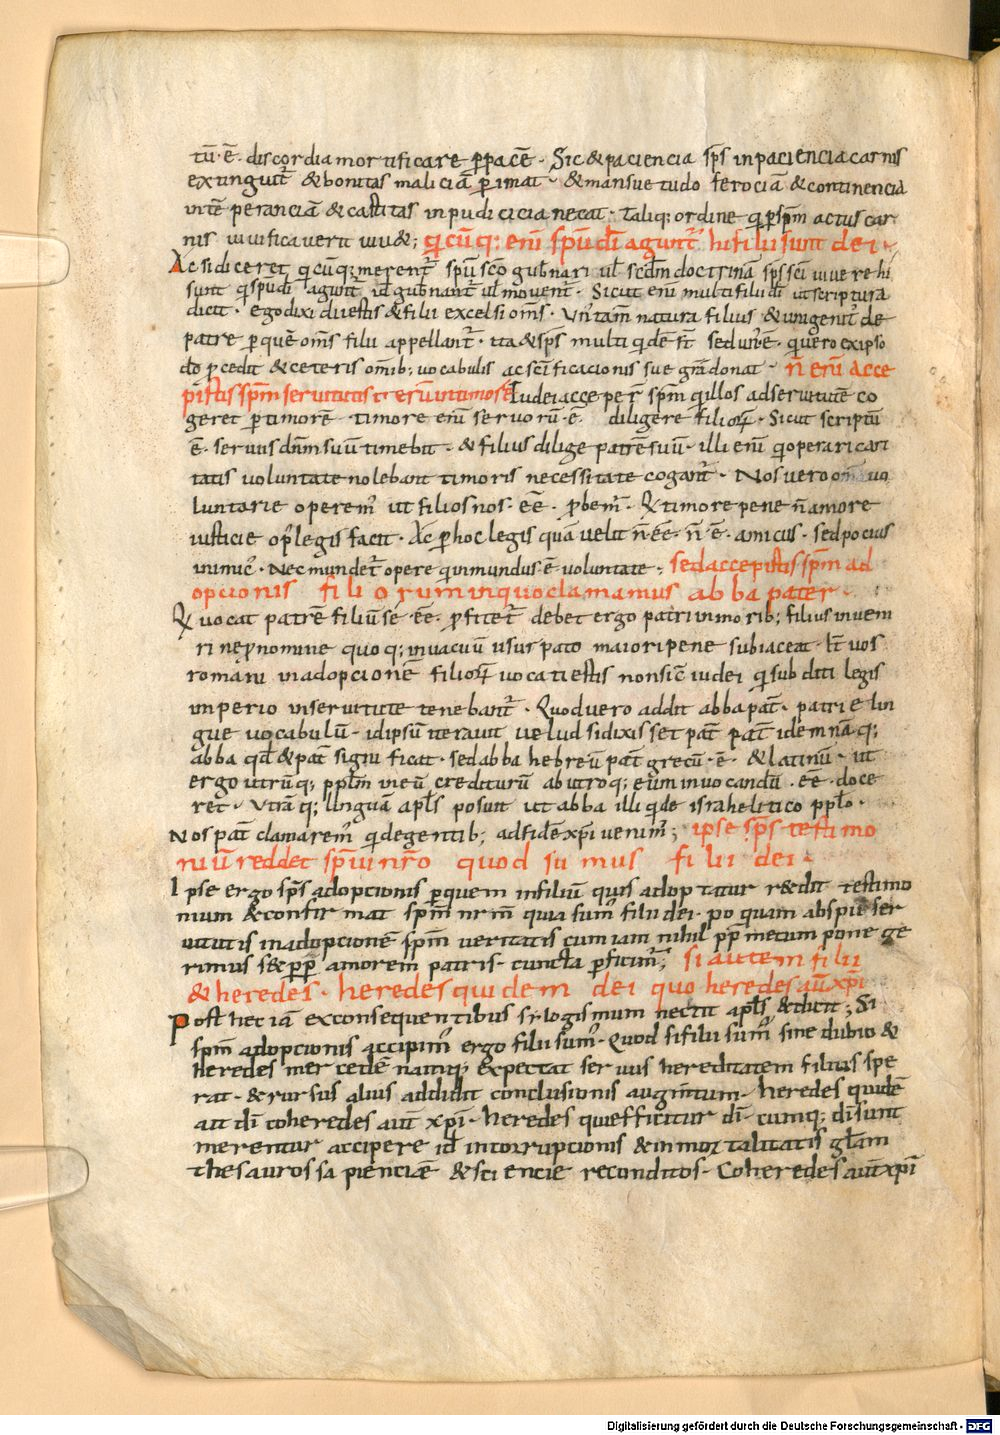 tū·ē· discordia mortificare ꝑ pacē· Sic & paciencia sp̄s inpaciencia carnis
extinguit̄ & bonitas maliciā ꝑimat· & mansuetudo ferociā & continencia
intēperanciā & castitas inpudicicia necat· taliq; ordine q̇ ꝑ sp̄m actus car
nis uiuificauerit uiu&; q̇cūq; enī sp̄u dī agunt̄ hi filii sunt dei·
Ac si diceret q̇cūq; merent̄ sp̄u sc̄o gub̄nari ul̄ scd̄m doctrinā sp̄s sc̄i uiuere hi
sunt q̇ sp̄u dī agunt̄ id̄ gub̄nant̄ ul̄ mouent̄· Sicut enī multi filii dī ut scriptura
dicit· ego dixi dii estis & filii excelsi om̄s· Un̄ tam̄ natura filius & unigenit᷒ de
patre ꝑ quē om̄s filii appellant̄· ita & sp̄s multi q̇dē st̄ sed un᷒ ē· q̇ uero ex ipso
dō ꝓcedit & ceteris om̄ib; uocabulis ac sc̄ificacionis sue grām donat· n̄ enī acce
pistis sp̄m seruitutis iterū in timore Iudei acceper̄ sp̄m q̇ illos ad seruitutē co
geret ꝑ timorē· timore enī seruorū·ē· diligere filioꝝ· Sicut scriptū
ē· seruus dn̄m suū timebit· & filius dilige patrē suū· illi enī q̇ operari cari
tatis uoluntate nolebant timoris necessitate cogant̄· Nos uero om̄ia uo
luntarie operem᷒ ut filios nos·eē· ꝓbem᷒· Q̇ timore pene n̄ amore
iusticie op᷒ legis facit· Ac ꝑ hoc legis quā uelit n̄·eē· n̄·ē· amicus· sed pocius
inimic᷒· Nec mundet̄ opere q̇ inmundus·ē· uoluntate· sed accepistis sp̄m ad
opcionis filiorum in quo clamamus abba pater·
Q̇ uocat patrē filiū se·eē· ꝓfitet̄ debet ergo patri in morib; filius inueni
ri ne ꝓ nomine quoq; in uacuū usurpato maiori pene subiaceat· It̄ uos
romani in adopcionē filioꝝ uocati estis non sic̄ iudei q̇ sub diti legis
inperio in seruitute tenebant̄· Quod uero addit abba pat̄· patrie lin
gue uocabulū· id ipsū iterauit uelud si dixisset pat̄ pat̄ idem nāq;
abba qd̄ & pat̄ significat· sed abba hebreū pat̄ grecū·ē· & latinū· ut
ergo utrūq; ppl̄m in eū crediturū ab utroq; eū inuocandū·eē· doce
ret· Utrāq; linguā apl̄s posuit ut abba illi q̇de israhelitico ppl̄o·
Nos pat̄ clamarem᷒ q̇ de gentib; ad fidē xp̄i uenim᷒; ipse sp̄s testimo
niū reddet sp̄ui nr̄o quod sumus filii dei·
Ipse ergo sp̄s adopcionis ꝑ quem in filiū quis adoptatur r&dit testimo
nium & confirmat sp̄m nr̄m quia sum᷒ filii dei· po quam ab spū ser
uitutis in adopcionē sp̄m ueritatis cum iam nihil ꝓp̄ metum pone ge
rimus s& ꝓp̄ amorem patris· cuncta ꝑficim᷒; si autem filii
& heredes· heredes quidem dei quo heredes aūt xp̄i
Post hec iā ex consequentibus silogismum nectit apl̄s & dicit; Si
sp̄m adopcionis accipim᷒ ergo filii sum᷒· Quod si filii sum᷒ sine dubio &
heredes mercedē namq; expectat seruus hereditatem filius spe
rat· & rursus alius addidit conclusionis augm̄tum· heredes quidē
ait dī coheredes aūt xp̄i· heredes qui efficitur dī· cumq; dī sunt
merentur accipere id̄ incorrupcionis & inmortalitatis gl̄am
thesauros sapienciæ & sciencie reconditos· Coheredes aūt xp̄i
Digitalisierung gefördert durch die Deutsche Forschungsgemeinschaft - DFG